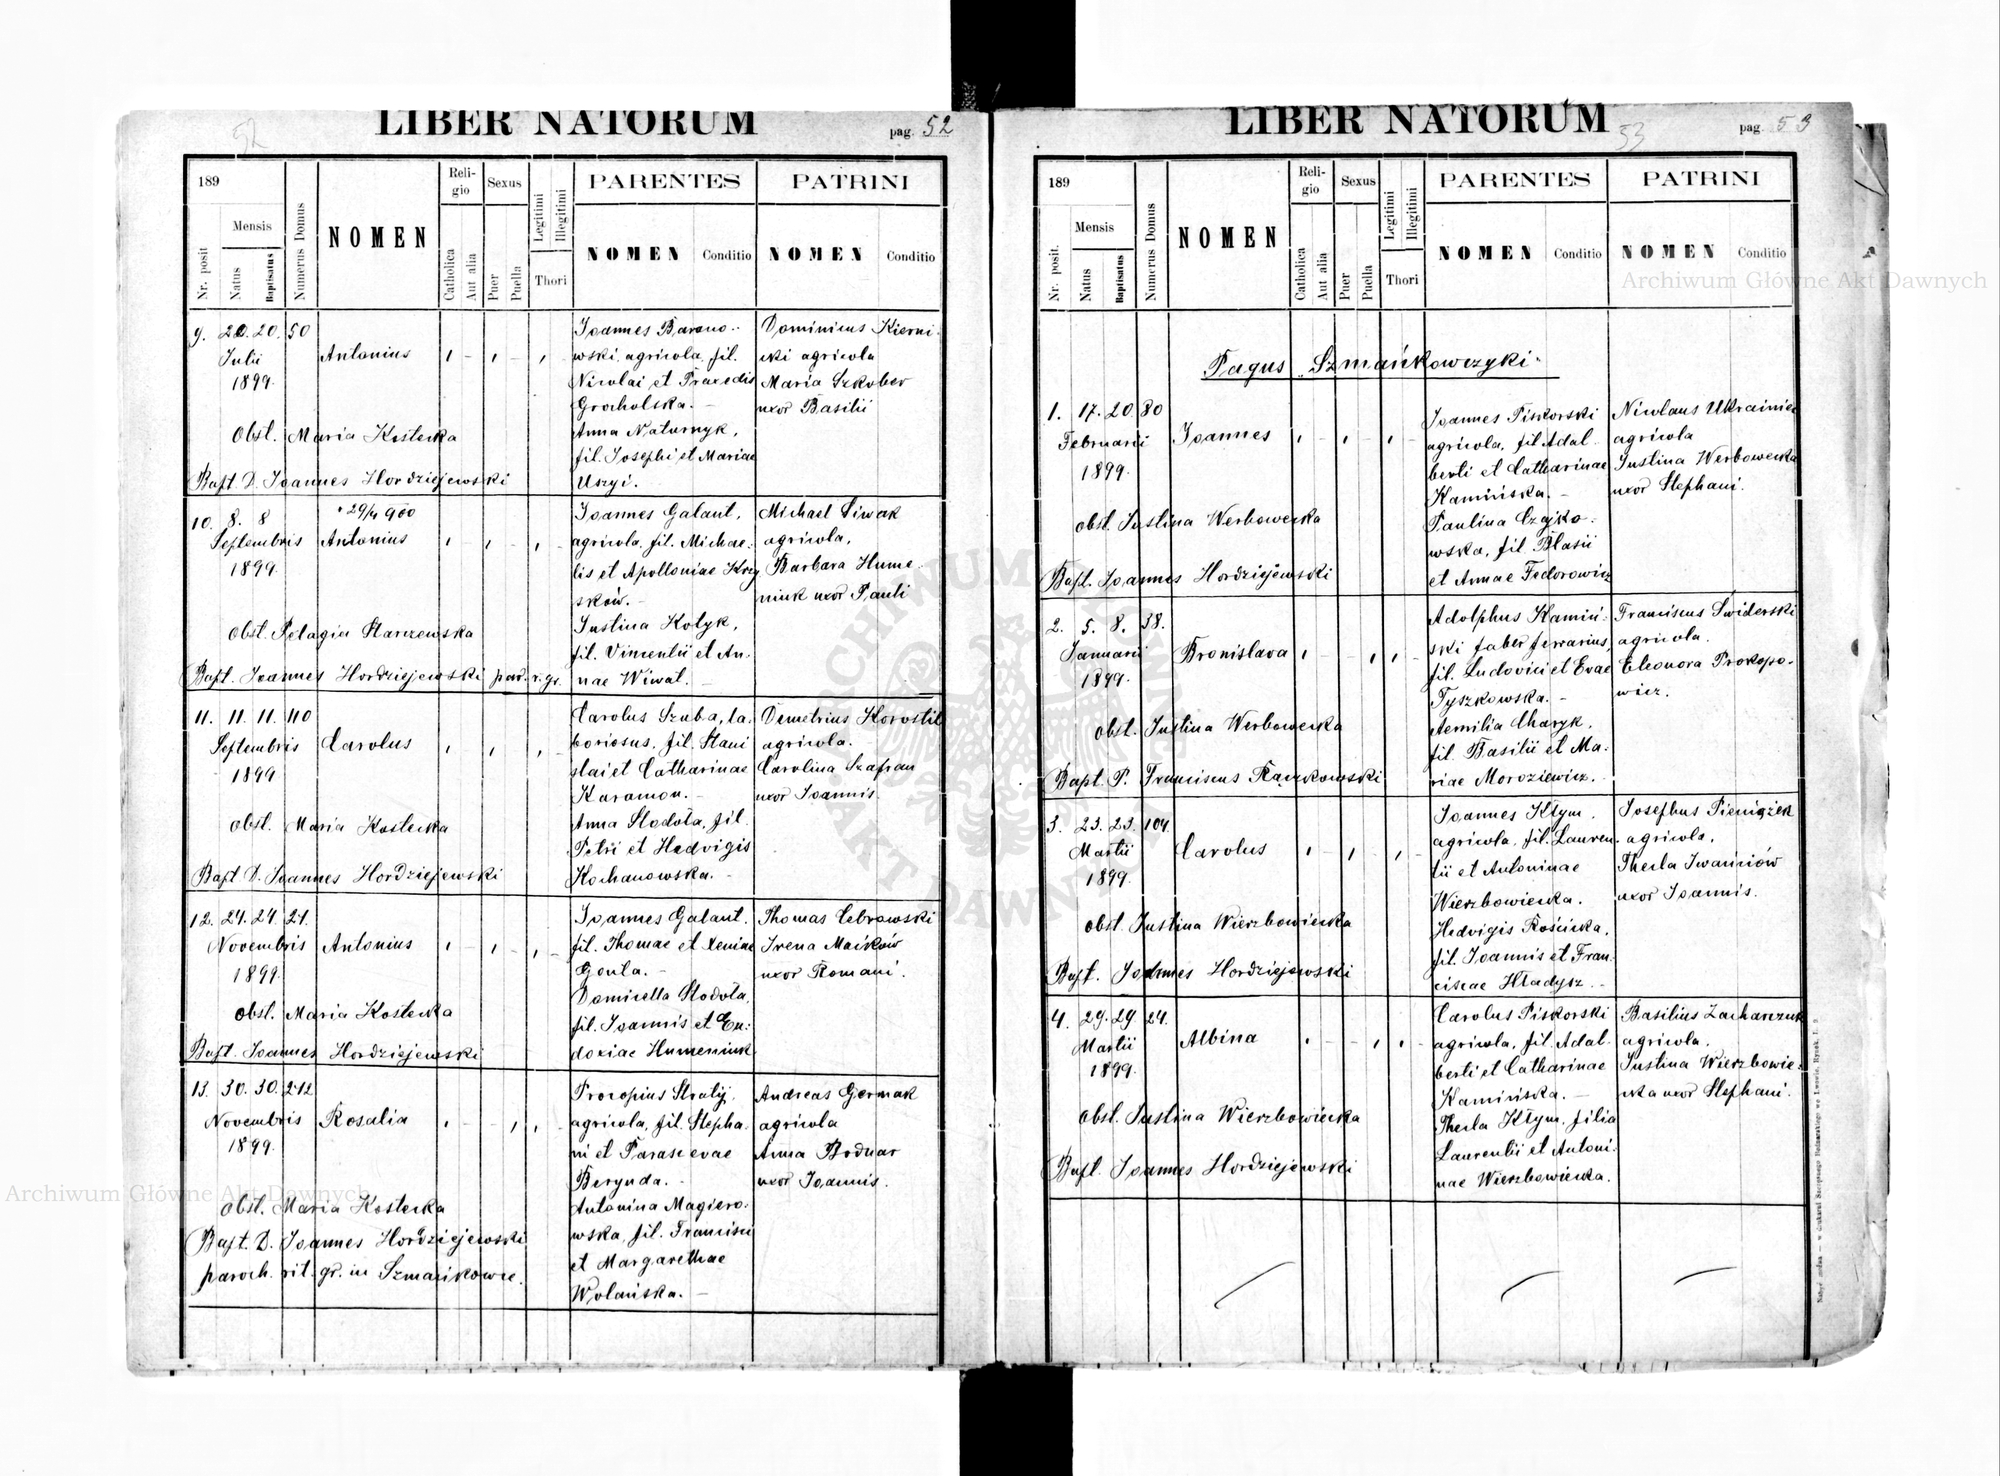 LIBER NATORUM
pag. 52
52
189
Mensis
Nr. posit
Natus
Baptisatus
Numerus Domus
NOMEN
Religio
Catholica
Aut alia
Sexus
Puer
Puella
Legitimi
Illegitimi
Thori
PARENTES
NOMEN
Conditio
PATRINI
NOMEN
Conditio
9. 20. 20. 50
Julii
1899.
Antonius
Obst. Maria Kostecka
Bapt. D. Joannes Hordziejewski
Joannes Barano-
wski, agricola, fil.
Nicolai et Praxedis
Grocholska. -
Anna Naturnyk,
fil. Josephi et Mariae
Uszyi.
Dominicus Kierni-
cki agricola
Maria Szkober
uxor Basilii
10. 8. 8
Septembris
1899.
29/4 900
Antonius
Obst. Pelagia Starzewska
Bapt. Joannes Hordziejewski par. r. gr.
Joannes Galant,
agricola, fil. Michae-
lis et Apolloniae Krzy
sków. -
Justina Kotyk,
fil. Vincentii et An-
nae Wiwat. -
Michael Siwak
agricola,
Barbara Hume-
niuk uxor Pauli
11. 11. 11. 110
Septembris
1899
Carolus
Obst. Maria Kostecka
Bapt D. Joannes Hordziejewski
Carolus Szuba, la-
boriosus, fil. Stani
slai et Catharinae
Karamon. -
Anna Stodoła, fil.
Petri et Hedvigis
Kochanowska. -
Demetrius Korostil
agricola.
Carolina Szafran
uxor Joannis.
12. 24. 24. 21.
Novembris
1899.
Antonius
Obst. Maria Kostecka
Bapt. Joannes Hordziejewski
Joannes Galant.
fil. Thomae et Xeniae
Gonta. -
Domicella Stodoła,
fil. Joannis et Eu-
doxiae Humeniuk.
Thomas Cebrowski
Irena Maików
uxor Romani.
13. 30. 30. 212
Novembris
1899.
Rosalia
Obst. Maria Kostecka
Bapt. D. Joannes Hordziejewski
paroch. rit. gr. in Szmańkowce.
Procopius Stratij,
agricola, fil. Stepha-
ni et Parascevae
Berynda. -
Antonina Magiero-
wska, fil. Francisci
et Margarethae
Wolańska. -
Andreas Germak
agricola
Anna Bodnar
uxor Joannis.
LIBER NATORUM
pag. 53
53
189
Mensis
Nr. posit.
Natus
Baptisatus
Numerus Domus
NOMEN
Religio
Catholica
Aut alia
Sexus
Puer
Puella
Legitimi
Illegitimi
Thori
PARENTES
NOMEN
Conditio
PATRINI
NOMEN
Conditio
Pagus Szmańkowczyki.
1. 17. 20. 80
Februarii
1899.
Joannes
obst. Justina Werbowecka
Bapt. Joannes Hordziejewski
Joannes Piskorski
agricola, fil Adal-
berti et Catharinae
Kamińska. -
Paulina Czajko-
wska, fil. Blasii
et Annae Fedorowicz
Nicolaus Ukrainiec
agricola
Justina Werbowecka
uxor Stephani.
2. 5. 8. 38.
Januarii
1899.
Bronislava
obst. Justina Werbowecka
Bapt. P. Franciscus Rączkowski
Adolphus Kamiń-
ski faber ferrarius,
fil. Ludovici et Evae
Tyszkowska. -
Aemilia Charyk,
fil. Basilii et Ma-
riae Moroziewicz.
Franciscus Świderski
agricola.
Eleonora Prokopo-
wicz.
3. 23. 23. 104.
Martii
1899.
Carolus
obst. Justina Wierzbowiecka
Bapt. Joannes Hordziejewski
Joannes Kłym,
agricola, fil. Lauren-
tii et Antoninae
Wierzbowiecka.
Hedvigis Rościcka,
fil. Joannis et Fran-
ciscae Hładysz. -
Josephus Pieniążek
agricola,
Thecla Iwanciów
uxor Joannis.
4. 29. 29. 24.
Martii
1899.
Albina
obst. Justina Wierzbowiecka
Bapt. Joannes Hordziejewski
Carolus Piskorski
agricola, fil. Adal-
berti et Catharinae
Kamińska. -
Thecla Kłym, filia
Laurentii et Antoni-
nae Wierzbowiecka.
Basilius Zacharczuk
agricola.
Justina Wierzbowie-
cka uxor Stephani.
Archiwum Główne Akt Dawnych
Archiwum Główne Akt Dawnych
ARCHIWUM GŁÓWNE AKT DAWNYCH